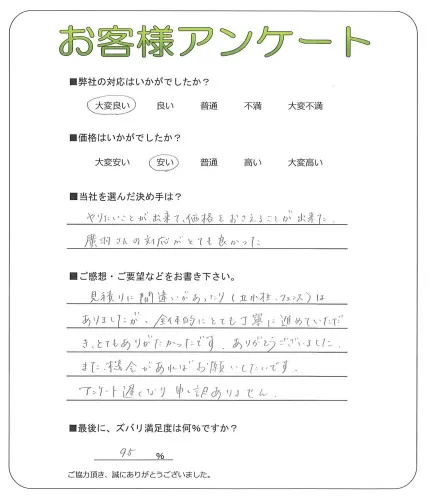 お客様アンケート
■弊社の対応はいかがでしたか？
大変良い 良い 普通 不満 大変不満
■価格はいかがでしたか？
大変安い 安い 普通 高い 大変高い
■当社を選んだ決め手は？
やりたいことが出来て、価格をおさえることが出来た。
廣羽さんの対応がとても良かった
■ご感想・ご要望などをお書き下さい。
見積りに間違いがあったり（立水栓、フェンス）は
ありましたが、全体的にとても丁寧に進めていただ
き、とてもありがたかったです。ありがとうございました。
また機会があればお願いしたいです。
アンケート遅くなり申し訳ありません。
■最後に、ズバリ満足度は何%ですか？
95 %
ご協力頂き、誠にありがとうございました。